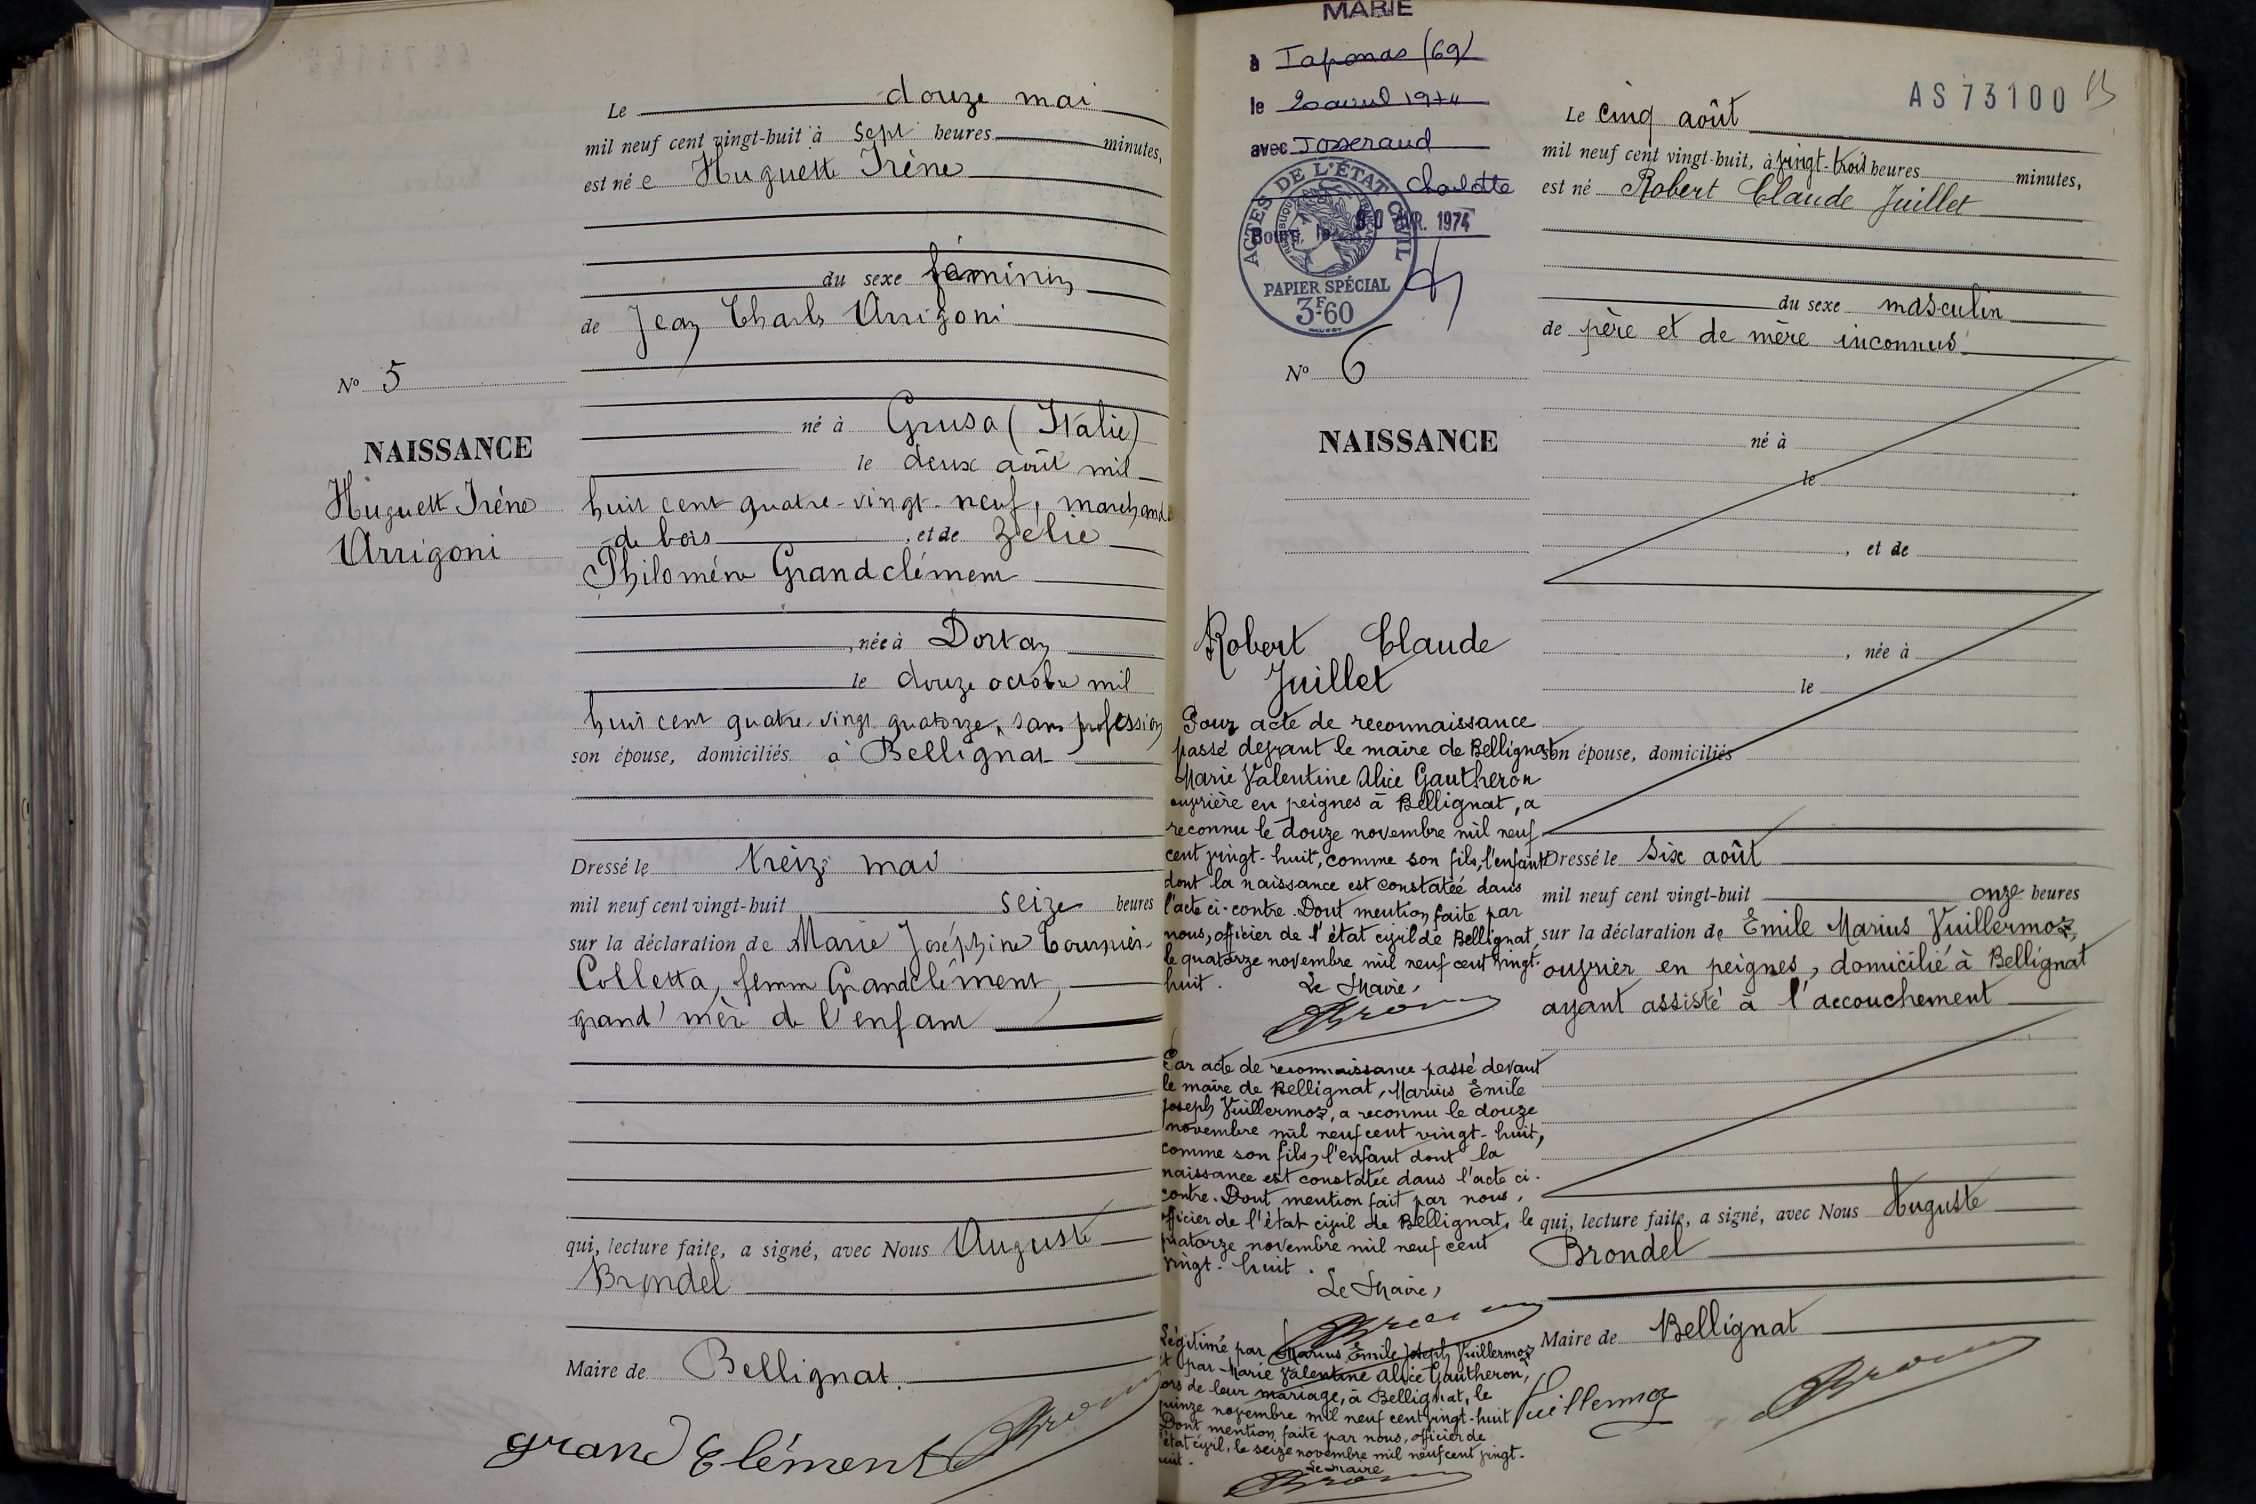 Le douze mai
mil neuf cent vingt-huit à sept heures minutes,
est né e Huguette Irène
du sexe féminin
de Jean Charles Arrigoni
né à Grusa (Italie)
le deux août mil
huit cent quatre-vingt-neuf, marchand
de bois, et de Zélie
Philomène Grandclément
, née à Dortan
le douze octobre mil
huit cent quatre-vingt quatorze, sans profession
son épouse, domiciliés à Bellignat
Dressé le treize mai
mil neuf cent vingt-huit seize heures
sur la déclaration de Marie Joséphine Tournier-
Colletta, femme Grandclément,
grand'mère de l'enfant
qui, lecture faite, a signé, avec Nous Auguste
Brondel
Maire de Bellignat.
grand Clément
No 5
NAISSANCE
Huguette Irène
Arrigoni
MARIE
à Taponas (69)
le 20 avril 1974
avec Josserand
Charlotte
Bourg, le 30 AVR. 1974
ACTES DE L'ÉTAT CIVIL
PAPIER SPÉCIAL
3F.60
No 6
NAISSANCE
Robert Claude
Juillet
Pour acte de reconnaissance
passé devant le maire de Bellignat
Marie Valentine Alice Gautheron
ouvrière en peignes à Bellignat, a
reconnu le douze novembre mil neuf
cent vingt-huit, comme son fils, l'enfant
dont la naissance est constatée dans
l'acte ci-contre. Dont mention faite par
nous, officier de l'état civil de Bellignat,
le quatorze novembre mil neuf cent vingt-
huit.
Le Maire,
Par acte de reconnaissance passé devant
le maire de Bellignat, Marius Émile
Joseph Vuillermoz, a reconnu le douze
novembre mil neuf cent vingt-huit,
comme son fils, l'enfant dont la
naissance est constatée dans l'acte ci-
contre. Dont mention fait par nous,
officier de l'état civil de Bellignat, le
quatorze novembre mil neuf cent
vingt-huit.
Le Maire,
Légitimé par Marius Émile Joseph Vuillermoz
et par Marie Valentine Alice Gautheron,
lors de leur mariage, à Bellignat, le
quinze novembre mil neuf cent vingt-huit
Dont mention faite par nous, officier de
l'état civil, le seize novembre mil neuf cent vingt-
huit.
Le Maire
AS 73100
Le cinq août
mil neuf cent vingt-huit, à vingt-trois heures minutes,
est né Robert Claude Juillet
du sexe masculin
de père et de mère inconnus
né à
le
, et de
, née à
le
son épouse, domiciliés
Dressé le six août
mil neuf cent vingt-huit onze heures
sur la déclaration de Émile Marius Vuillermoz,
ouvrier en peignes, domicilié à Bellignat
ayant assisté à l'accouchement
qui, lecture faite, a signé, avec Nous Auguste
Brondel
Maire de Bellignat
Vuillermoz